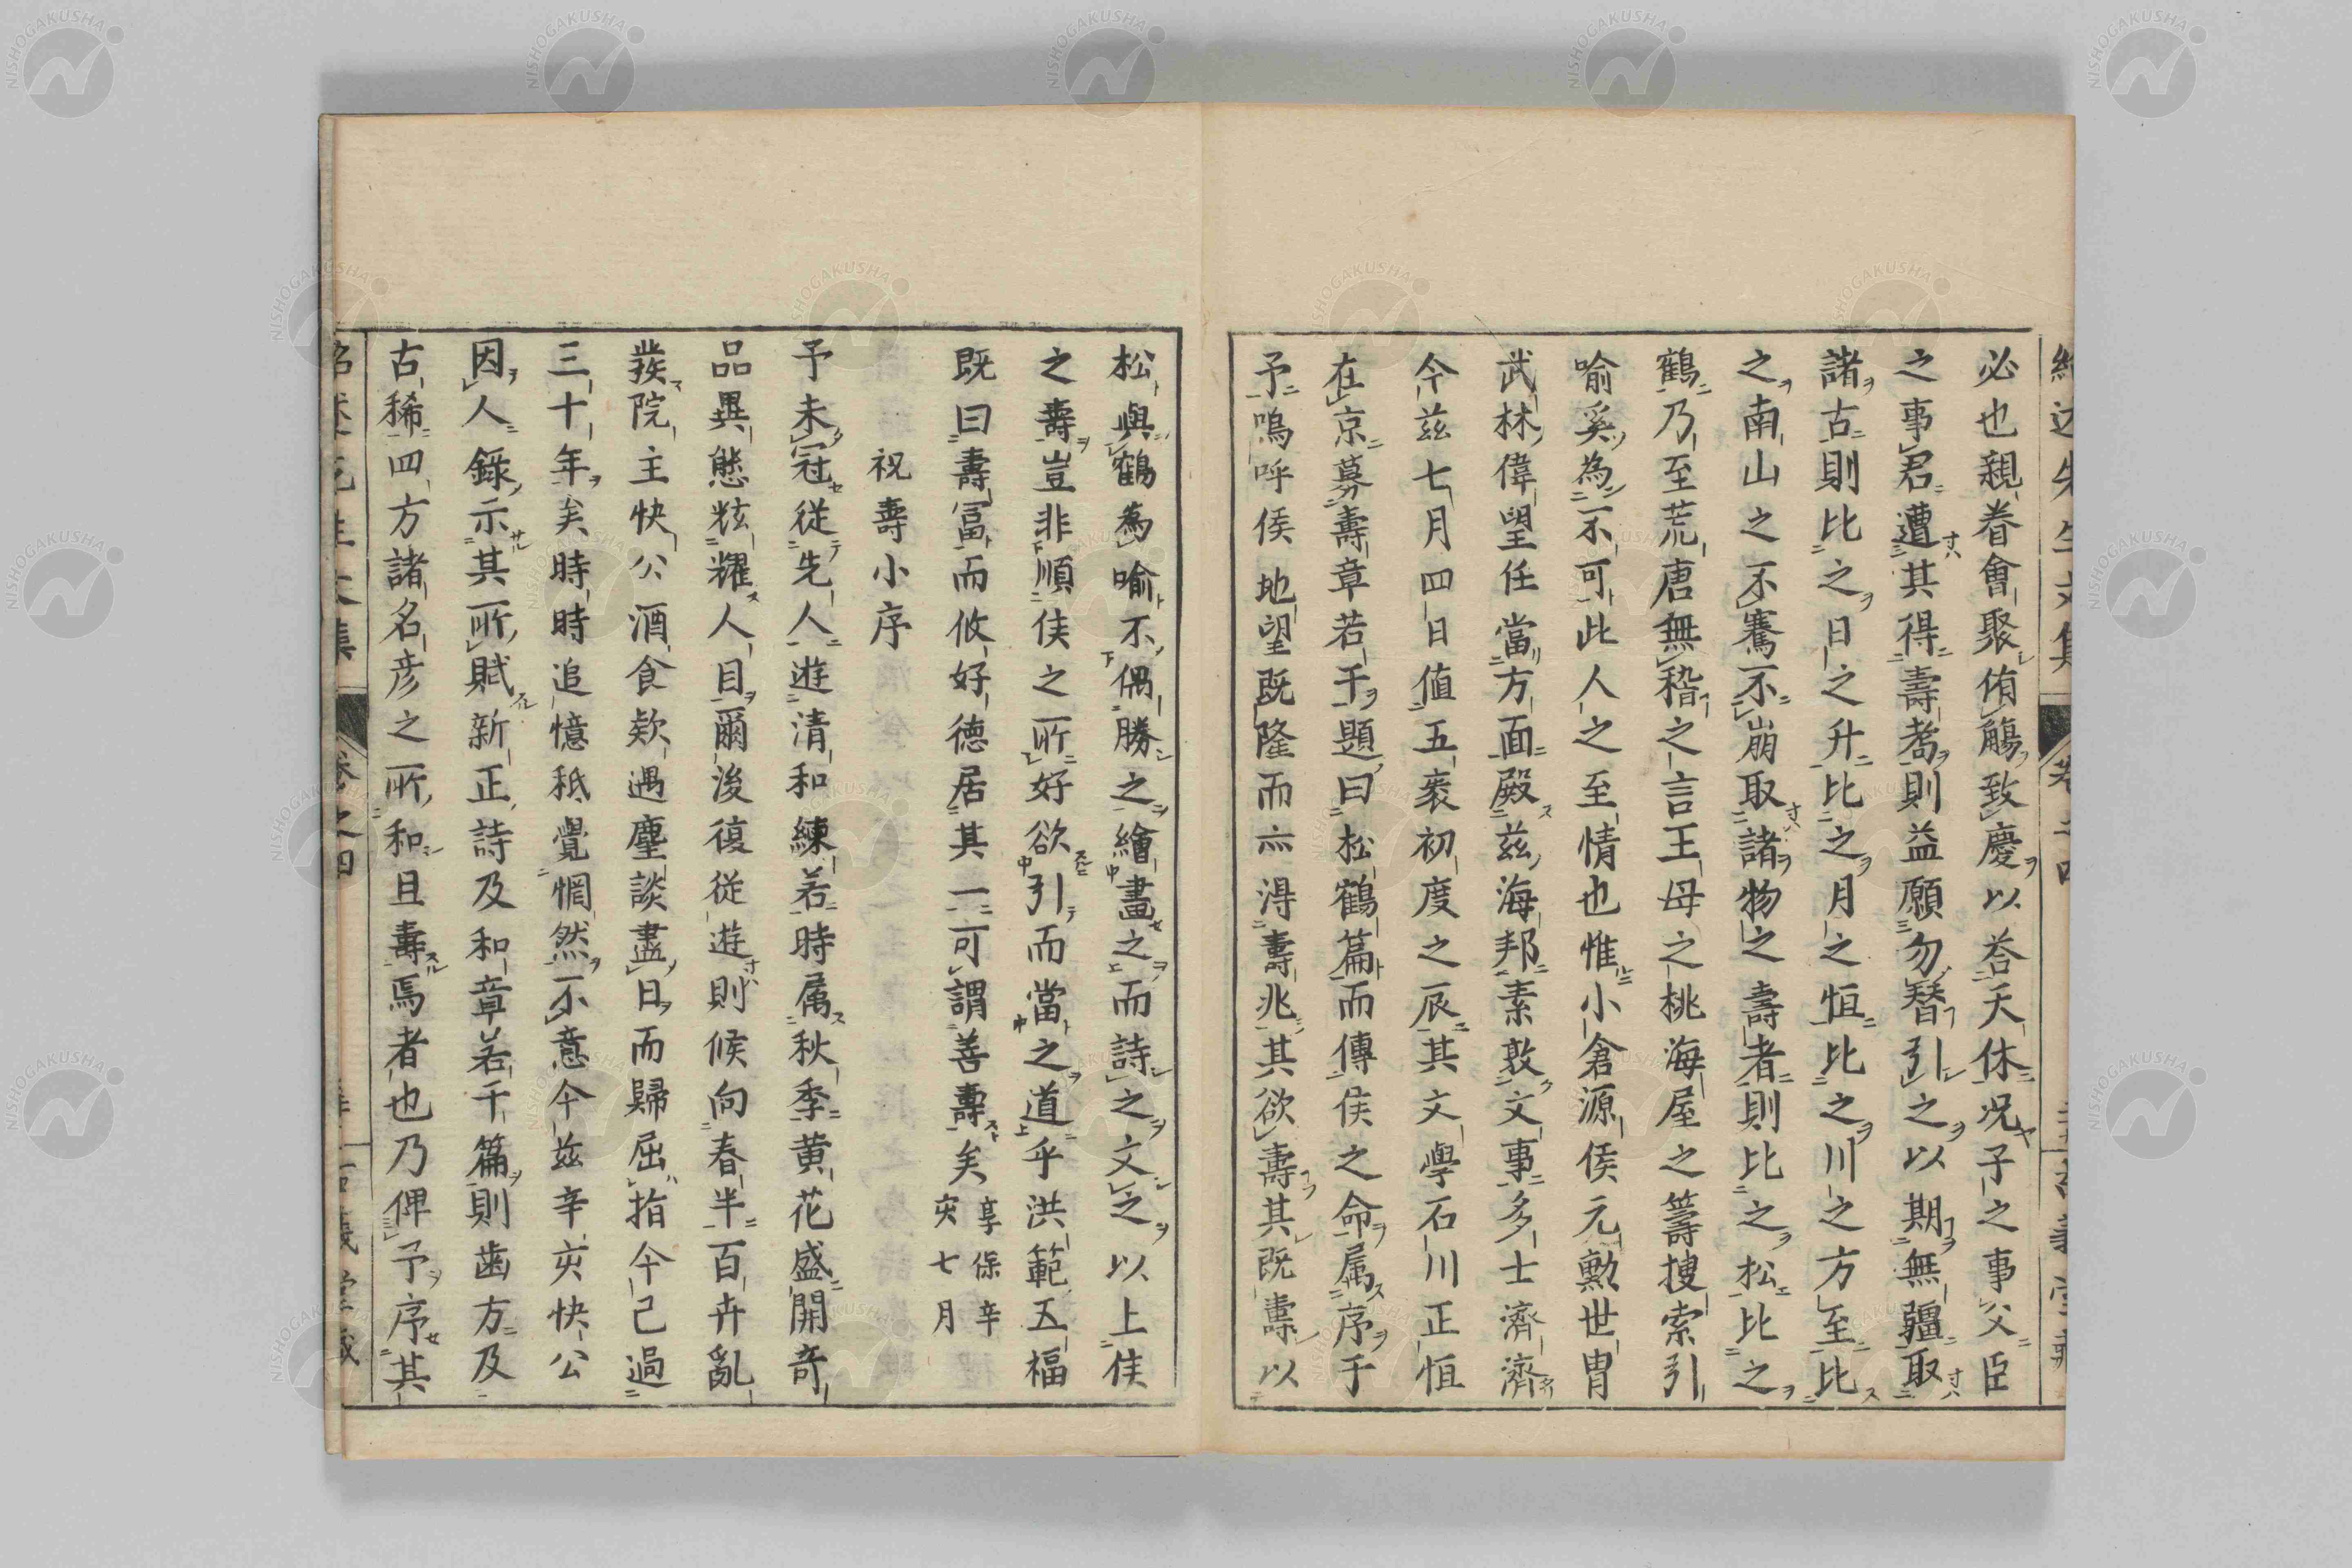 必也親眷會聚侑觴致慶以荅天休况子之事父臣
之事君遭其得壽耈則益願勿替引之以期無疆取
諸古則比之日之升比之月之恒比之川之方至比
之南山之不騫不崩取諸物之壽者則比之松比之
鶴乃至荒唐無稽之言王母之桃海屋之籌搜索引
喻奚為不可此人之至情也惟小倉源侯元勳世胄
武林偉望任當方面殿茲海邦素敦文事多士濟濟
今茲七月四日值五袠初度之辰其文學石川正恒
在京募壽章若干題曰松鶴篇而傳侯之命属序于
予嗚呼侯地望既隆而亦得壽兆其欲壽其既壽以
松與鶴為喻不偶勝之繪畫之而詩之文之以上侯
之壽豈非順侯之所好欲引而當之道乎洪範五福
既曰壽冨而攸好德居其一可謂善壽矣
享保辛
亥七月
祝壽小序
予未冠從先人遊清和練若時属秋季黄花盛開奇
品異態炫耀人目爾後復從遊則候向春半百卉亂
發院主快公酒食欵遇塵談盡日而歸屈指今已過
三十年矣時時追憶秖覺惘然不意今茲辛亥快公
因人錄示其所賦新正詩及和章若干篇則齒方及
古稀四方諸名彦之所和且壽焉者也乃俾予序其